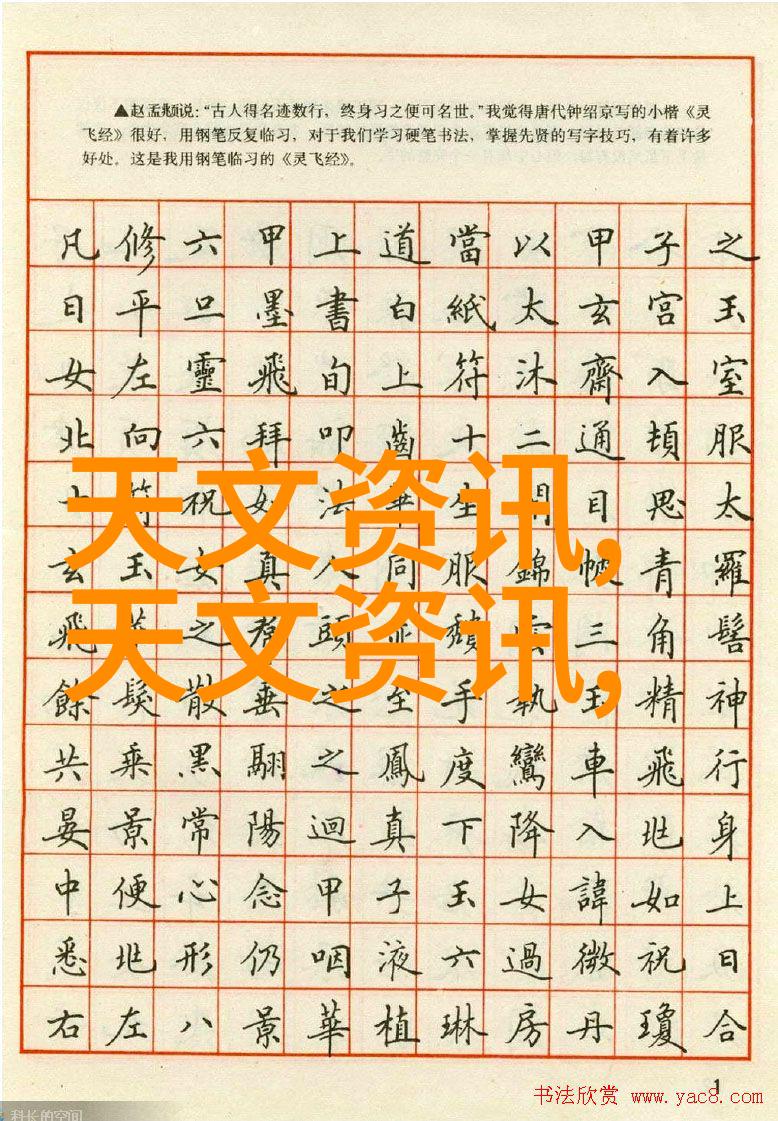 ▲赵孟頫说：“古人得名迹数行，终身习之便可名世。”我觉得唐代钟绍京写的小楷《灵
飞经》很好，用钢笔反复临习，对于我们学习硬笔书法，掌握先贤的写字技巧，有着许多
好处。这是我用钢笔临习的《灵飞经》。
凡修六甲上道當以甲子之
日平旦墨書白紙太玄宮玉
女左靈飛旬上符沐齋入室
北向六拜叩齒十二通頓服
符祝如法生目思太
玄玉女真人同服錦帔青羅
飛華之頭並頹雲三角髻
餘髮散垂之至手執玉精神
共乘黑翮之鳳度鸞車飛行
晏景常陽迴真下降入兆身
中便心念甲子玉女諱如上
悉兆形仍咽液六過微祝日
右左八景華植琳房丹瓊合
天文资讯,
天文资讯,
1
书法欣赏 www.yac8.com
科长的空间